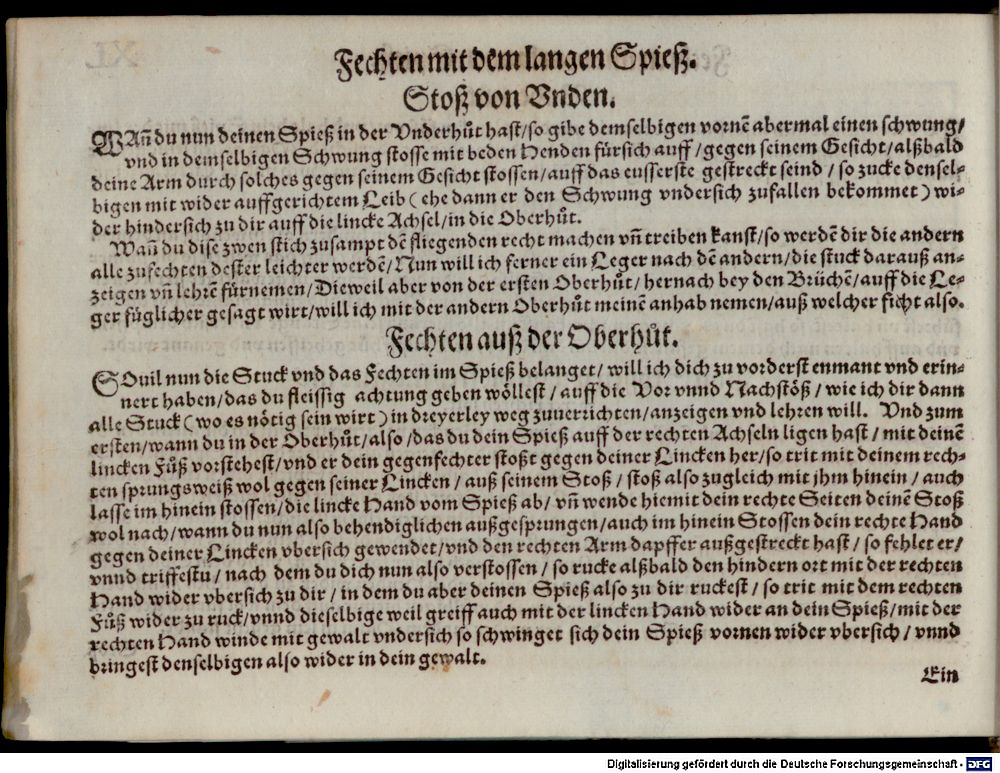 Fechten mit dem langen Spieß.
Stoß von Vnden.
WAñ du nun deinen Spieß in der Vnderhůt hast/so gibe demselbigen vornẽ abermal einen schwung/
vnd in demselbigen Schwung stosse mit beden Henden fürsich auff/gegen seinem Gesicht/alßbald
deine Arm durch solches gegen seinem Gesicht stossen/auff das eusserste gestreckt seind/so zucke densel-
bigen mit wider auffgerichtem Leib (ehe dann er den Schwung vndersich zufallen bekommet) wi-
der hindersich zu dir auff die lincke Achsel/in die Oberhůt.
Wañ du dise zwen stich zusampt dẽ fliegenden recht machen vñ treiben kanst/so werdẽ dir die andern
alle zufechten dester leichter werdẽ/Nun will ich ferner ein Leger nach dẽ andern/die stuck darauß an-
zeigen vñ lehrẽ fürnemen/Dieweil aber von der ersten Oberhůt/hernach bey den Brüchẽ/auff die Le-
ger füglicher gesagt wirt/will ich mit der andern Oberhůt meinẽ anhab nemen/auß welcher ficht also.
Fechten auß der Oberhůt.
SOuil nun die Stuck vnd das Fechten im Spieß belanget/will ich dich zu vorderst enmant vnd erin-
nert haben/das du fleissig achtung geben wöllest/auff die Vor vnnd Nachstöß/wie ich dir dann
alle Stuck (wo es nötig sein wirt) in dreyerley weg zuuerrichten/anzeigen vnd lehren will. Vnd zum
ersten/wann du in der Oberhůt/also/das du dein Spieß auff der rechten Achseln ligen hast/mit deinẽ
lincken Fůß vorstehest/vnd er dein gegenfechter stoßt gegen deiner Lincken her/so trit mit deinem rech-
ten sprungsweiß wol gegen seiner Lincken/auß seinem Stoß/stoß also zugleich mit jhm hinein/auch
lasse im hinein stossen/die lincke Hand vom Spieß ab/vñ wende hiemit dein rechte Seiten deinẽ Stoß
wol nach/wann du nun also behendiglichen außgesprungen/auch im hinein Stossen dein rechte Hand
gegen deiner Lincken vbersich gewendet/vnd den rechten Arm dapffer außgestreckt hast/so fehlet er/
vnnd triffestu/nach dem du dich nun also verstossen/so rucke alßbald den hindern ort mit der rechten
Hand wider vbersich zu dir/in dem du aber deinen Spieß also zu dir ruckest/so trit mit dem rechten
Fůß wider zu ruck/vnnd dieselbige weil greiff auch mit der lincken Hand wider an dein Spieß/mit der
rechten Hand winde mit gewalt vndersich so schwinget sich dein Spieß vornen wider vbersich/vnnd
bringest denselbigen also wider in dein gewalt.
Ein
Digitalisierung gefördert durch die Deutsche Forschungsgemeinschaft - DFG